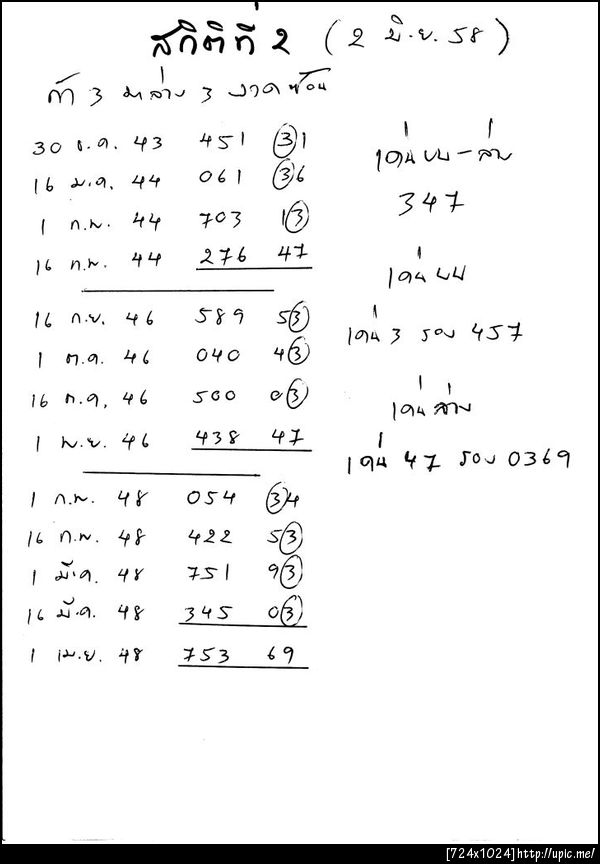 สถิติที่ 2 (2 มิ.ย. 58)
ถ้า 3 มาล่าง 3 งวดซ้อน
30 ธ.ค. 43 451 31
16 ม.ค. 44 061 36
1 ก.พ. 44 703 13
16 ก.พ. 44 276 47
16 ก.ย. 46 589 53
1 ต.ค. 46 040 43
16 ต.ค. 46 500 03
1 พ.ย. 46 438 47
1 ก.พ. 48 054 34
16 ก.พ. 48 422 53
1 มี.ค. 48 751 93
16 มี.ค. 48 345 03
1 เม.ย. 48 753 69
เด่นบน-ล่าง
347
เด่นบน
เด่น 3 รอง 457
เด่นล่าง
เด่น 47 รอง 0369
[724x1024]http://upic.me/